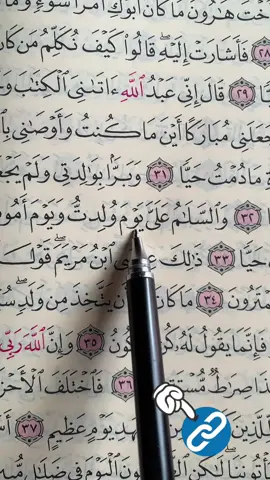 خْتَ هَٰرُونَ مَا كَانَ أَبُوكِ ٱمْرَأَ سَوْءٍ وَمَا
٢٨ فَأَشَارَتْ إِلَيْهِ ۖ قَالُوا۟ كَيْفَ نُكَلِّمُ مَن كَا
٢٩ قَالَ إِنِّى عَبْدُ ٱللَّهِ ءَاتَىٰنِىَ ٱلْكِتَٰبَ وَ
جَعَلَنِى مُبَارَكًا أَيْنَ مَا كُنتُ وَأَوْصَٰنِى بِٱ
ةِ مَا دُمْتُ حَيًّا ٣١ وَبَرًّۢا بِوَٰلِدَتِى وَلَمْ يَجْعَ
٣٢ وَٱلسَّلَٰمُ عَلَىَّ يَوْمَ وُلِدتُّ وَيَوْمَ أَمُو
حَيًّا ٣٣ ذَٰلِكَ ٱبْنُ مَرْيَمَ ۚ قَوْلَ
مْتَرُونَ ٣٤ مَا كَانَ أَن يَتَّخِذَ مِن وَلَدٍ ۖ سُ
فَإِنَّمَا يَقُولُ لَهُۥ كُن كُونُ ٣٥ وَإِنَّ ٱللَّهَ رَبِّى
ذَا صِرَٰطٌ مُّسْتَ ٣٦ فَٱخْتَلَفَ ٱلْأَحْزَ
لِّلَّذِينَ هَدِ يَوْمٍ عَظِيمٍ ٣٧
أْتُونَنَا ۖ لَٰكِنِ ٱل ونَ ٱلْيَوْمَ فِى ضَلَٰلٍ مُّ